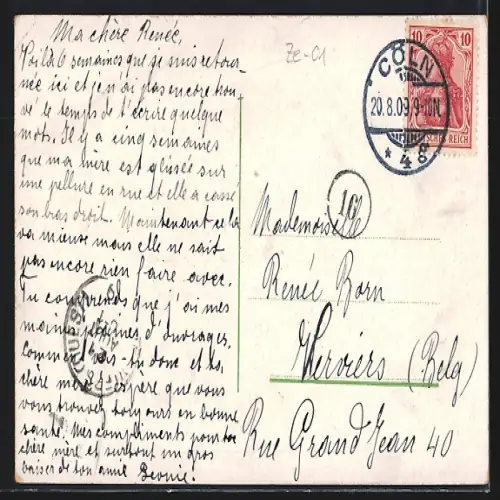 Ma chère Renée,
Voilà 6 semaines que je suis retour-
née ici et je n'ai pas encore trou-
vé le temps de t'écrire quelque
mots. Il y a cinq semaines
que ma mère est glissée sur
une pellure en rue et elle a cassé
son bras droit. Maintenant cela
va mieuse mais elle ne sait
pas encore rien faire avec.
Tu comprends que j'ai mes
mains pleines d'ouvrages.
Comment vas-tu donc et ta
chère mère j'espère que vous
vous trouvez toujours en bonne
santé. Mes compliments pour ta
chère mère et surtout un gros
baiser de ton amie Leonie.
Ze-01
10 10
CÖLN
20.8.09. 9-10N.
* 4 8
REICH
10
Mademoiselle
Renée Born
Verviers (Belg)
Rue Grand Jean 40